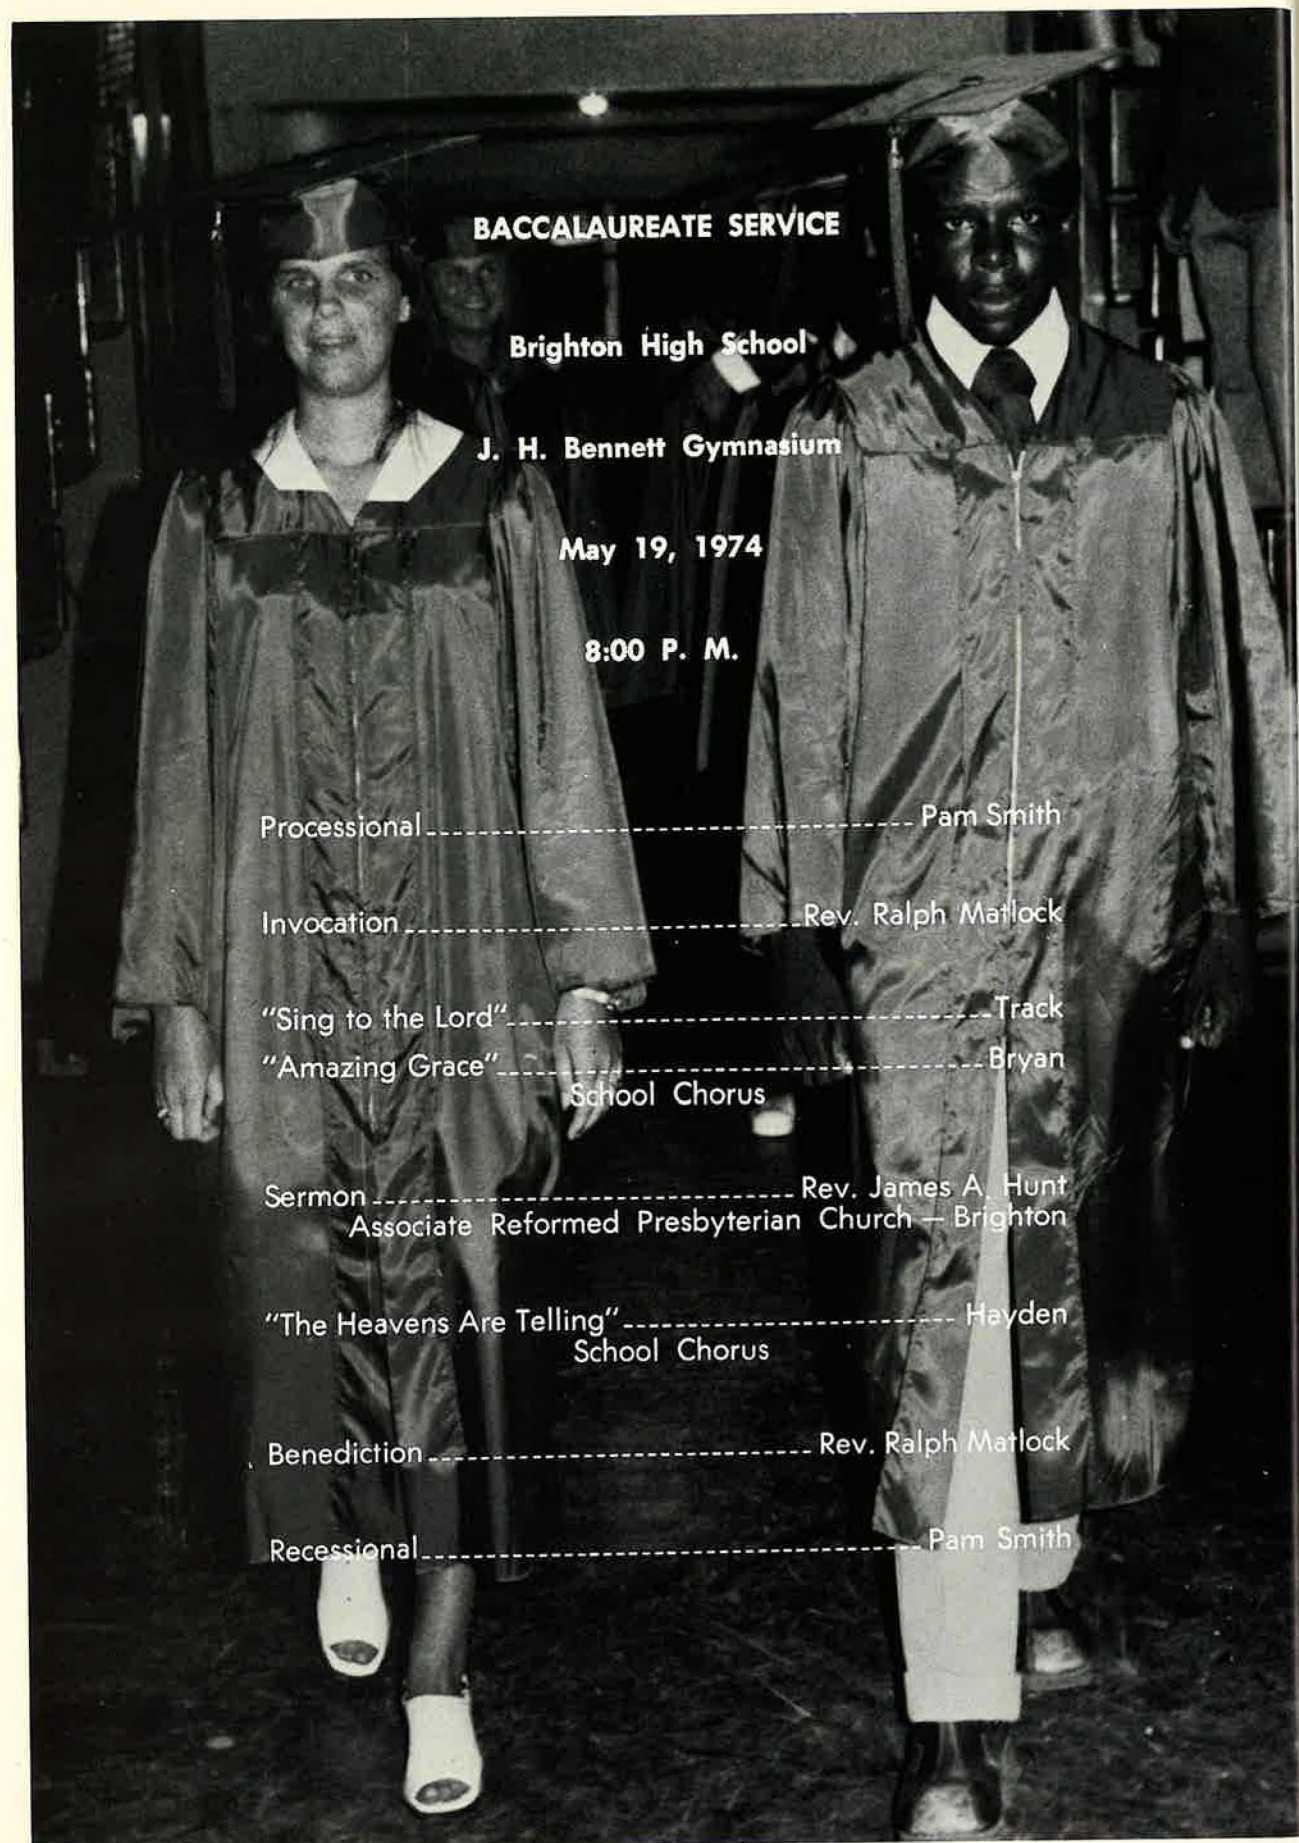 BACCALAUREATE SERVICE
Brighton High School
J. H. Bennett Gymnasium
May 19, 1974
8:00 P. M.
Processional Pam Smith
Invocation Rev. Ralph Matlock
"Sing to the Lord" Track
"Amazing Grace" Bryan
School Chorus
Sermon Rev. James A. Hunt
Associate Reformed Presbyterian Church — Brighton
"The Heavens Are Telling" Hayden
School Chorus
Benediction Rev. Ralph Matlock
Recessional Pam Smith